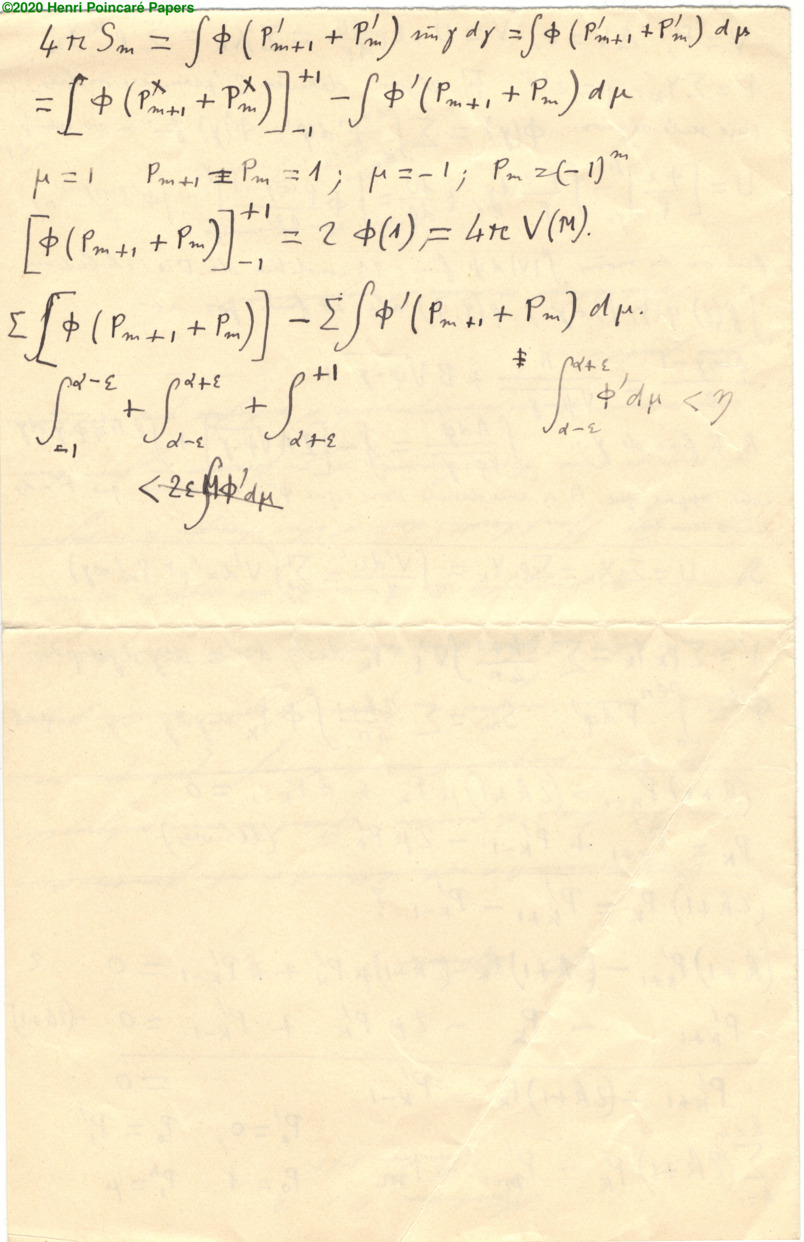 ©2020 Henri Poincaré Papers
4π S_m = ∫ Φ (P'_{m+1} + P'_m) sin γ dγ = ∫ Φ (P'_{m+1} + P'_m) dμ
= [Φ (P_{m+1} + P_m)]_{-1}^{+1} − ∫ Φ' (P_{m+1} + P_m) dμ
μ = 1 P_{m+1} = P_m = 1 ; μ = −1 ; P_m = (−1)^m
[Φ (P_{m+1} + P_m)]_{-1}^{+1} = 2 Φ(1) = 4π V(M).
Σ [Φ (P_{m+1} + P_m)] − Σ ∫ Φ' (P_{m+1} + P_m) dμ.
∫_{-1}^{α−ε} + ∫_{α−ε}^{α+ε} + ∫_{α+ε}^{+1} ∫_{α−ε}^{α+ε} Φ' dμ < η
< 2ε ∫ Φ' dμ